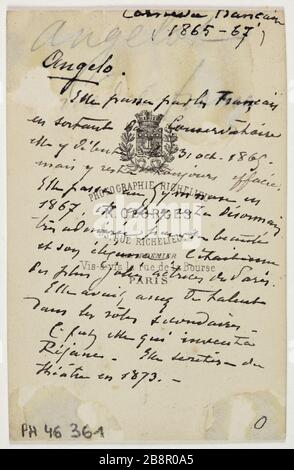 Comédie Française
1865-67
Angelo
Angelo.
Elle passa par les Français
en sortant du Conservatoire
elle y débuta 31 oct. 1865
mais y resta toujours effacée
PHOTOGRAPHIE RICHELIEU
Elle passa au Gymnase en
1867,
A. GEORGES
très admirée pour sa beauté
RUE RICHELIEU
et son élégance
PREMIER
des plus jolies actrices de Paris.
Vis-à-vis la rue de la Bourse
PARIS
Elle avait assez de talent
dans les rôles secondaires.
C'est elle qui inventa
Réjane. Elle se retira du
théâtre en 1873.
PH 46 361
0
alamy
Image ID: 2B8R0A5
www.alamy.com